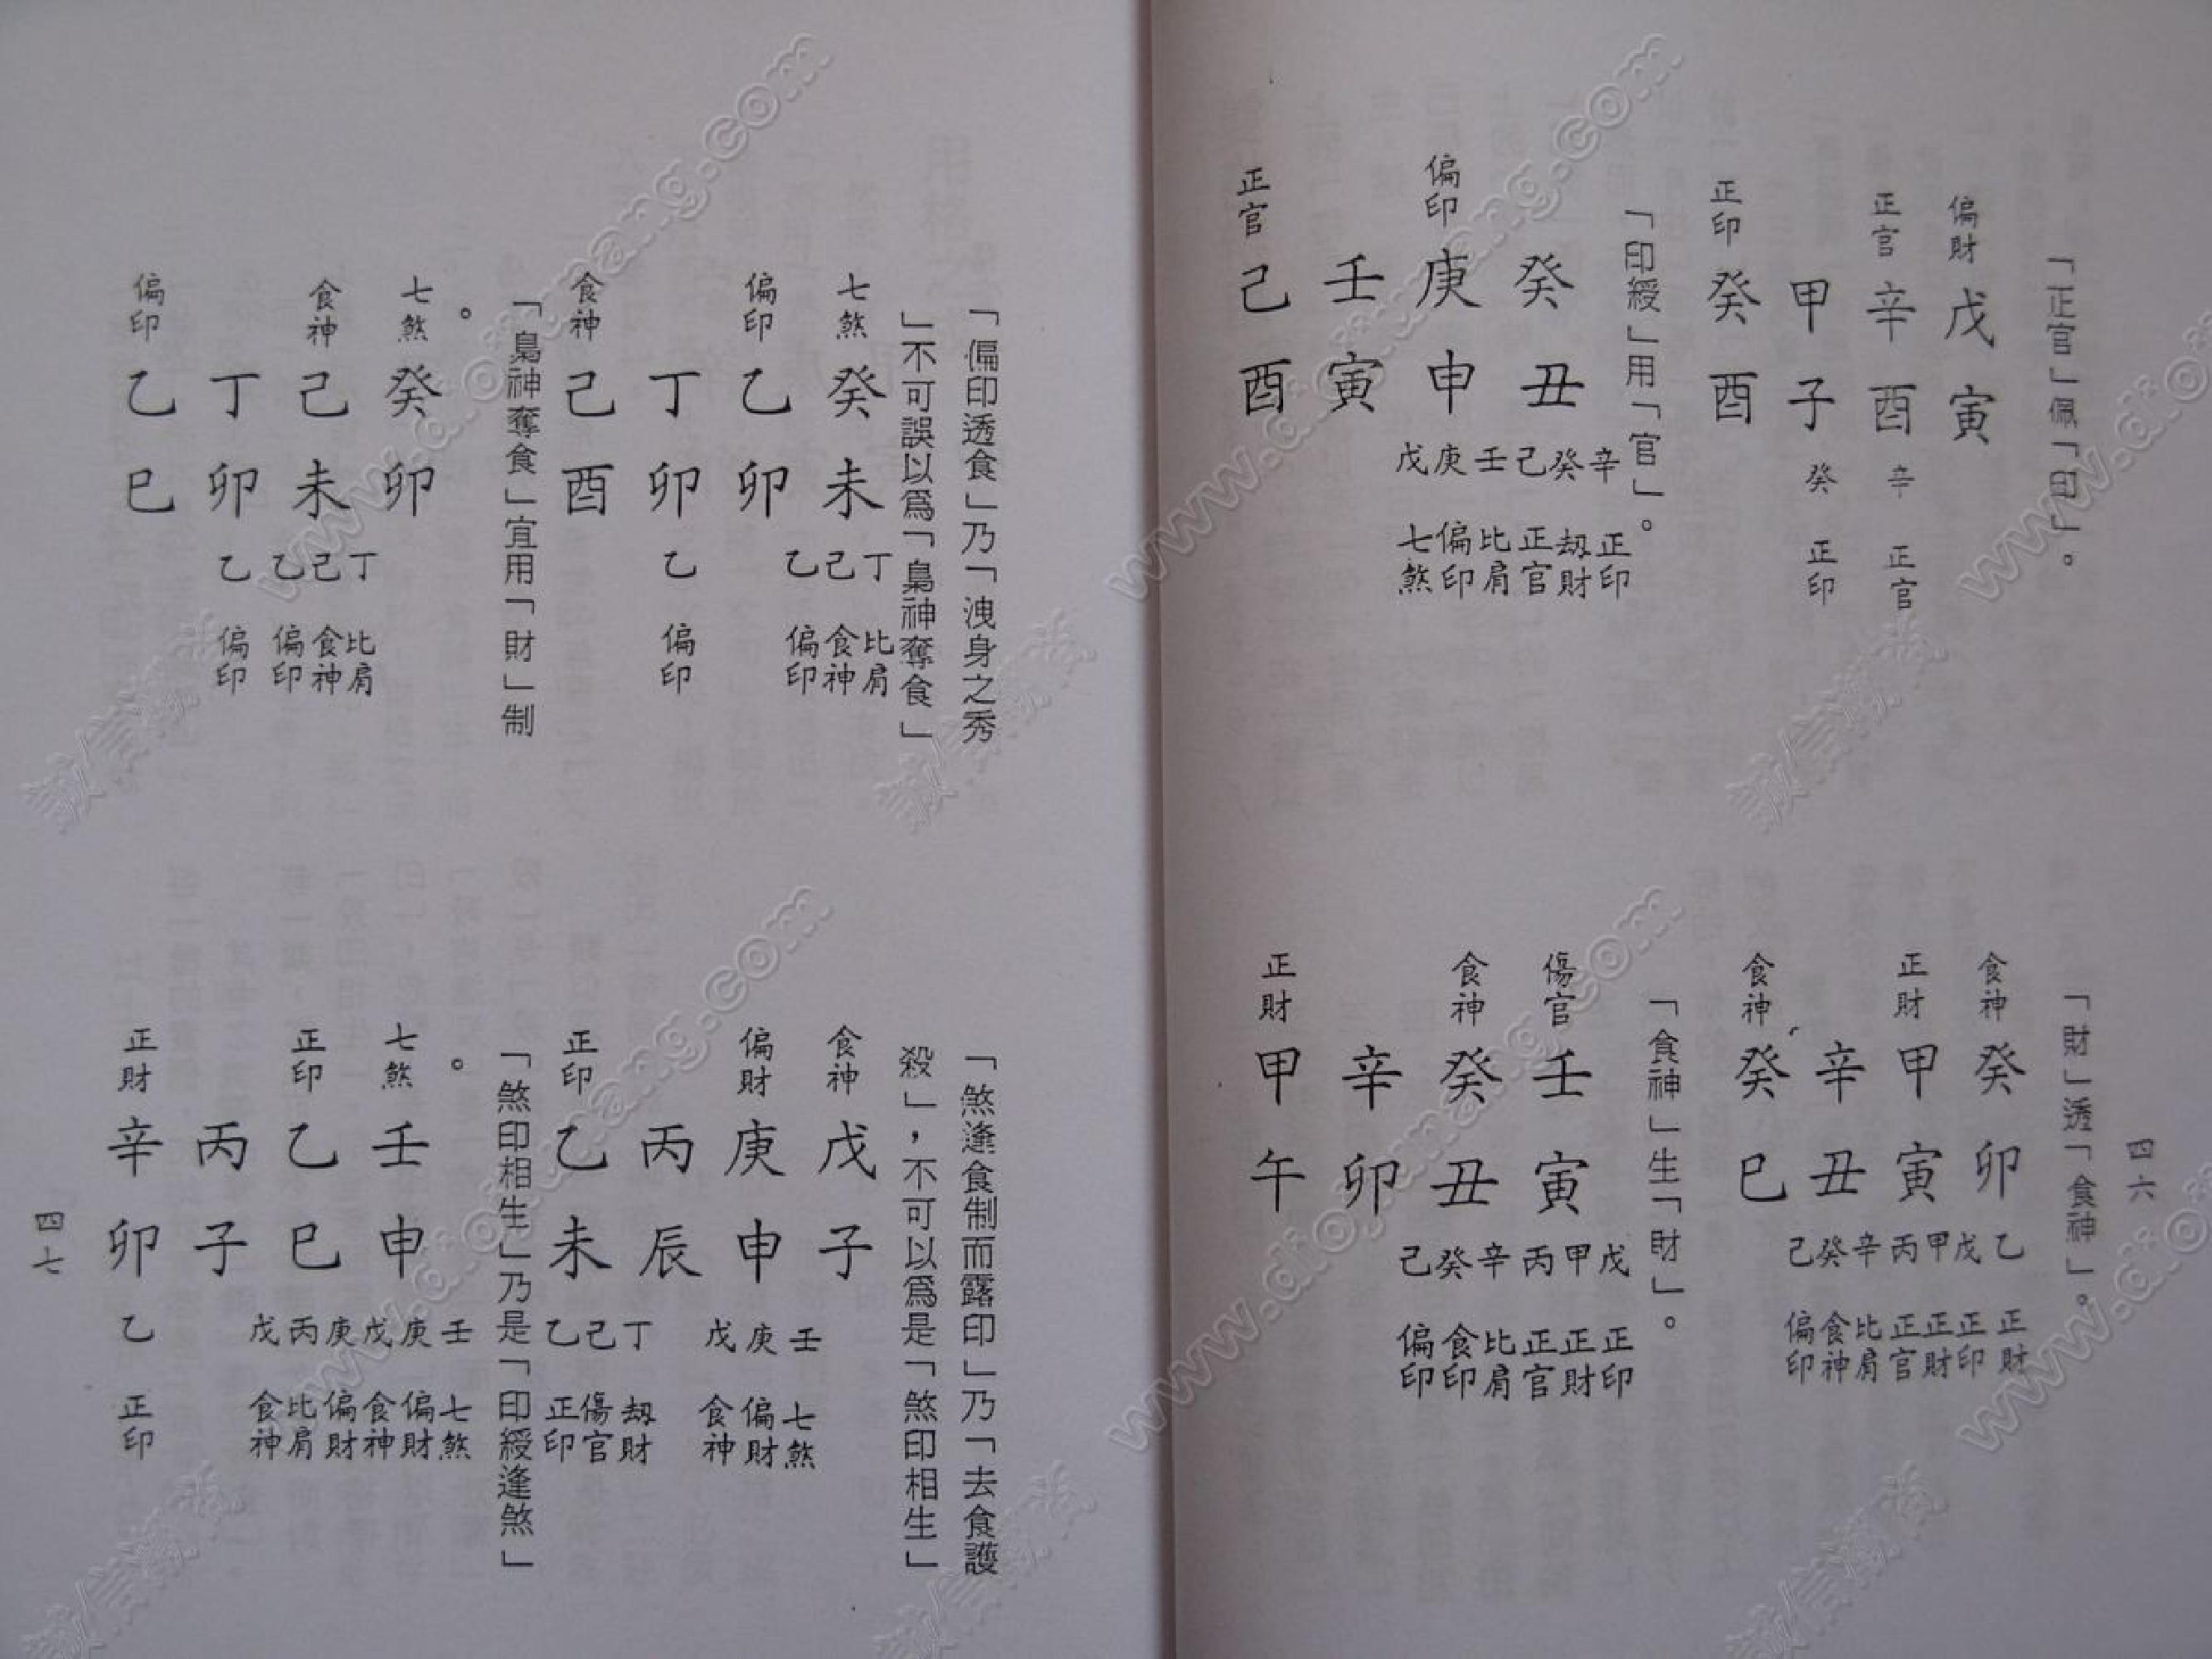 四六
「正官」佩「印」。
偏財 戊寅
正官 辛酉 辛 正官
甲子 癸 正印
正印 癸酉
「印綬」用「官」。
癸丑 辛癸己 正印 劫財 正官
偏印 庚申 壬庚戊 比肩 偏印 七煞
壬寅
正官 己酉
「財」透「食神」。
食神 癸卯 乙 正財
正財 甲寅 戊甲丙 正印 正財 正官
辛丑 辛癸己 比肩 食神 偏印
食神 癸巳
「食神」生「財」。
傷官 壬寅 戊甲丙 正印 正財 正官
食神 癸丑 辛癸己 比肩 食印 偏印
辛卯
正財 甲午
「偏印透食」乃「洩身之秀
」不可誤以為「梟神奪食」
七煞 癸未 丁己乙 比肩 食神 偏印
偏印 乙卯
丁卯 乙 偏印
食神 己酉
「梟神奪食」宜用「財」制
。
七煞 癸卯
食神 己未 丁己乙 比肩 食神 偏印
丁卯 乙 偏印
偏印 乙巳
「煞逢食制而露印」乃「去食護
殺」，不可以為是「煞印相生」
食神 戊子
偏財 庚申 壬庚戊 七煞 偏財 食神
丙辰
正印 乙未 丁己乙 劫財 傷官 正印
「煞印相生」乃是「印綬逢煞」
。
七煞 壬申 壬庚戊 七煞 偏財 食神
正印 乙巳 庚丙戊 偏財 比肩 食神
丙子
正財 辛卯 乙 正印
四七
www.dioyuang.com
誠信藏拳